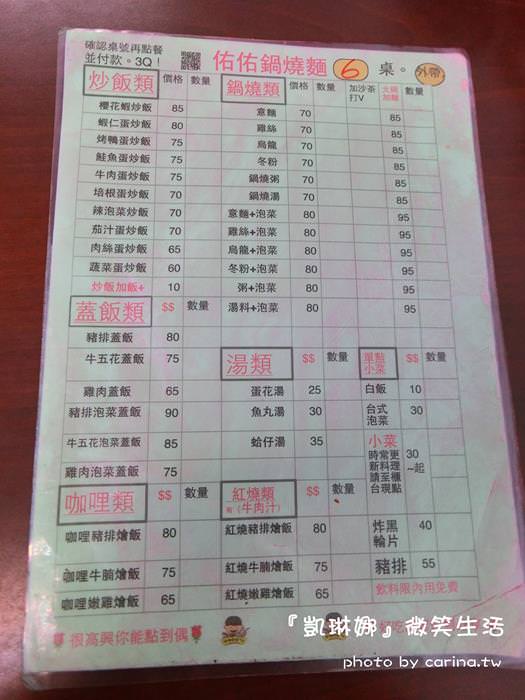 確認桌號再點餐
並付款。3Q!
佑佑鍋燒麵 6 桌。外帶
炒飯類 價格 數量
櫻花蝦炒飯 85
蝦仁蛋炒飯 80
烤鴨蛋炒飯 75
鮭魚蛋炒飯 75
牛肉蛋炒飯 75
培根蛋炒飯 70
辣泡菜炒飯 70
茄汁蛋炒飯 70
肉絲蛋炒飯 65
蔬菜蛋炒飯 60
炒飯加飯+ 10
鍋燒類 價格 數量 加沙茶打V 大碗加麵 數量
意麵 70 85
雞絲 70 85
烏龍 70 85
冬粉 70 85
鍋燒粥 70 85
鍋燒湯 70 85
意麵+泡菜 80 95
雞絲+泡菜 80 95
烏龍+泡菜 80 95
冬粉+泡菜 80 95
粥+泡菜 80 95
湯料+泡菜 80 95
蓋飯類 $$ 數量
豬排蓋飯 80
牛五花蓋飯 75
雞肉蓋飯 65
豬排泡菜蓋飯 90
牛五花泡菜蓋飯 85
雞肉泡菜蓋飯 75
湯類 $$ 數量
蛋花湯 25
魚丸湯 30
蛤仔湯 35
單點小菜 $$ 數量
白飯 10
台式泡菜 30
小菜
時常更新料理請至櫃台現點 30~起
炸黑輪片 40
豬排 55
飲料限內用免費
咖哩類 $$ 數量
咖哩豬排燴飯 80
咖哩牛腩燴飯 75
咖哩嫩雞燴飯 65
紅燒類 $$ 數量
有(牛肉汁)
紅燒豬排燴飯 80
紅燒牛腩燴飯 75
紅燒嫩雞燴飯 65
很高興你能點到偶
好吃
『凱琳娜』微笑生活
photo by carina.tw